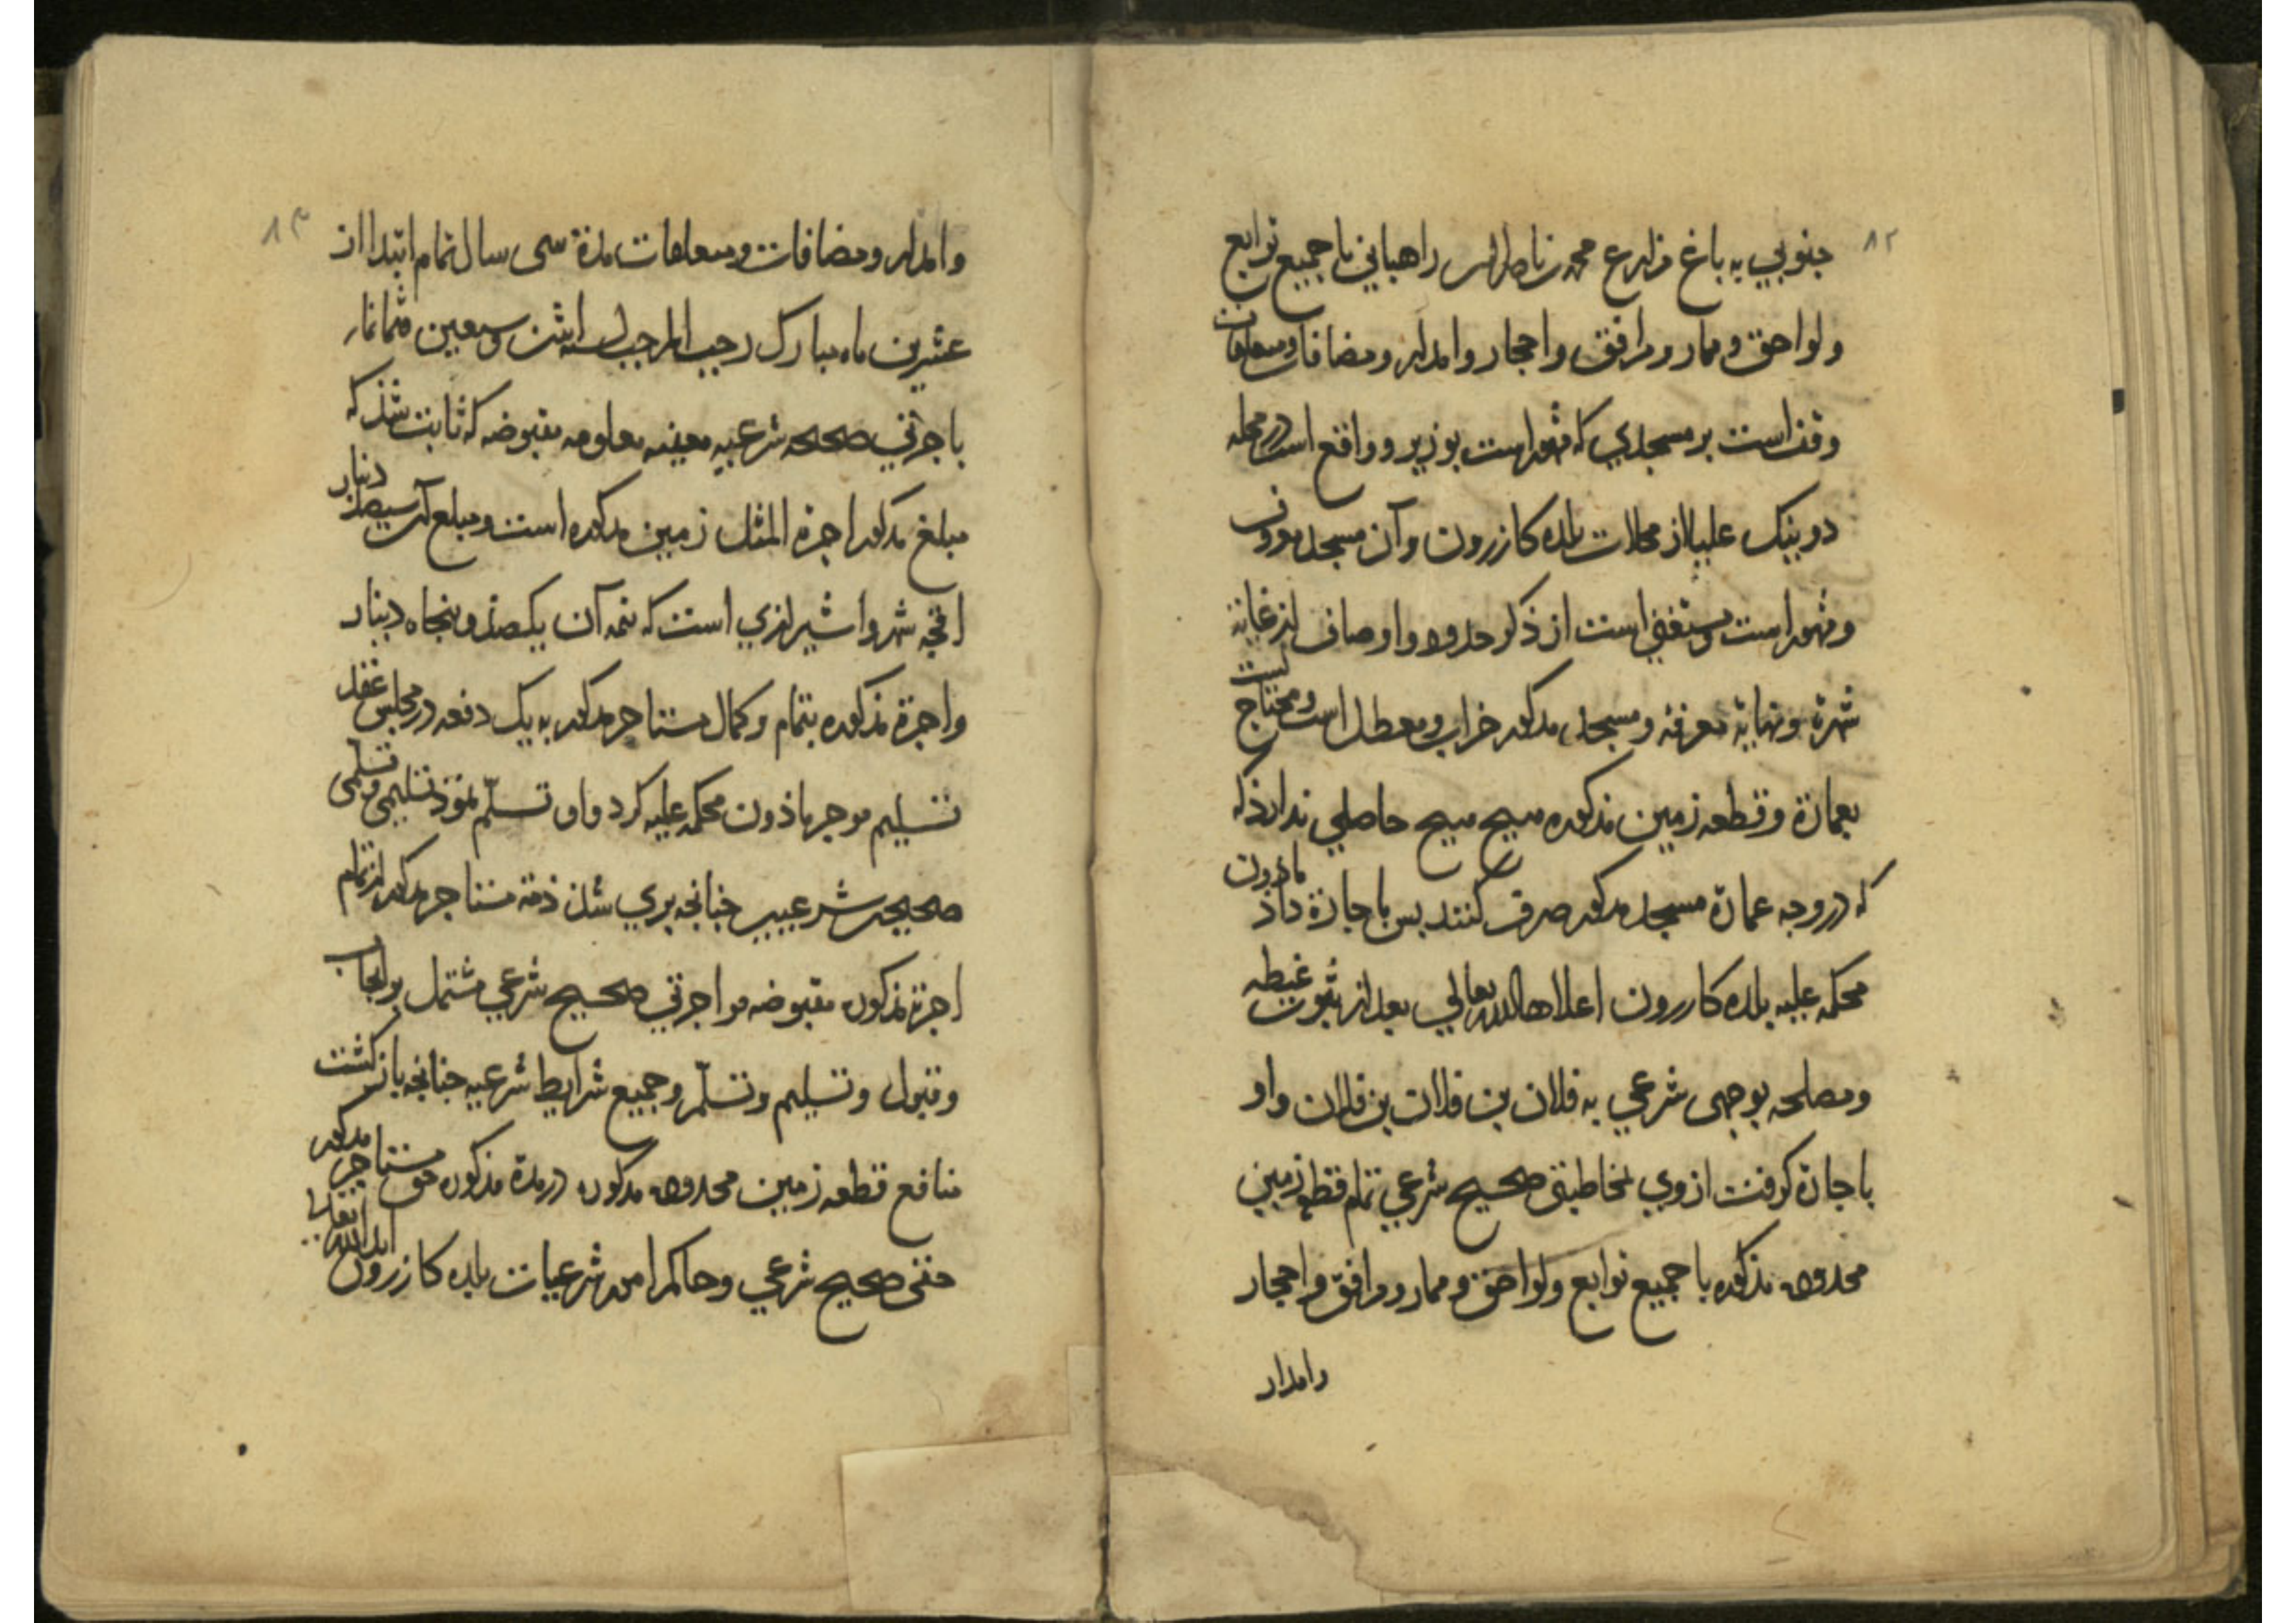 ۸۲
جنوبي به باغ مزارع محمد راهباني با جميع توابع
ولواحق وممار ومرافق واحجار وامدار ومضافات ومعاملات
وقف است بر مسجدي كه مشهور است بوزير وواقع است در محله
دوبنيك عليا از محلات بلده كازرون وآن مسجد معروف
ومشهور است ومستغني است از ذكر حدود واوصاف از غاية
شهرة ونهاية معرفة ومسجد مذكور خراب ومعطل است ومحتاج است
بعمارة وقطعه زمين مذكوره هيچ هيچ حاصلي ندارد كه
كه در وجه عمارة مسجد مذكور صرف كنند بس باجارة داد ماذون
محكمه عليه بلده كازرون اعلاها الله تعالي بعد از ثبوت غبطه
ومصلحه بوجهى شرعي به فلان بن فلان بن فلان واو
باجارة كرفت از وي مخاطبتى صحيح شرعي تمام قطعه زمين
محدوده مذكوره با جميع توابع ولواحق وممار ومرافق واحجار
وامدار
۸۳
وامدار ومضافات ومعاملات مدة سى سال تمام ابتدا از
عشرين ماه مبارك رجب المرجب لسنه اثنين وسبعين وثمانمايه
باجرتي صحيحه شرعيه معينه معلومه مقبوضه كه ثابت شد كه
مبلغ مذكور اجرة المثل زمين مذكوره است ومبلغ آن سيصد دينار
اقچه شهروا شيرازي است كه نيمه آن يكصد وپنجاه دينار
واجرة مذكوره بتمام وكمال مستاجر مذكور به يك دفعه در مجلس عقد
تسليم موجر ماذون محكمه عليه كرد واو تسلّم نمود تسليمى وتسلّمى
صحيحين شرعيين چنانچه بري شد ذمة مستاجر مذكور از تمام
اجرة مذكوره مقبوضه مواجرتي صحيح شرعي مشتمل بر ايجاب
وقبول وتسليم وتسلّم وجميع شرايط شرعيه چنانچه باز كشت
منافع قطعه زمين محدوده مذكوره در مدة مذكوره حق مستاجر مذكور
حقى صحيح شرعي وحاكم امور شرعيات بلده كازرون ايد الله تعالى